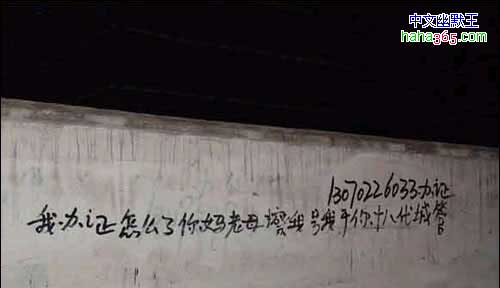 中文幽默王
haha365.com
13070226033办证
我办证怎么了你妈老母 我号我干你十八代城管